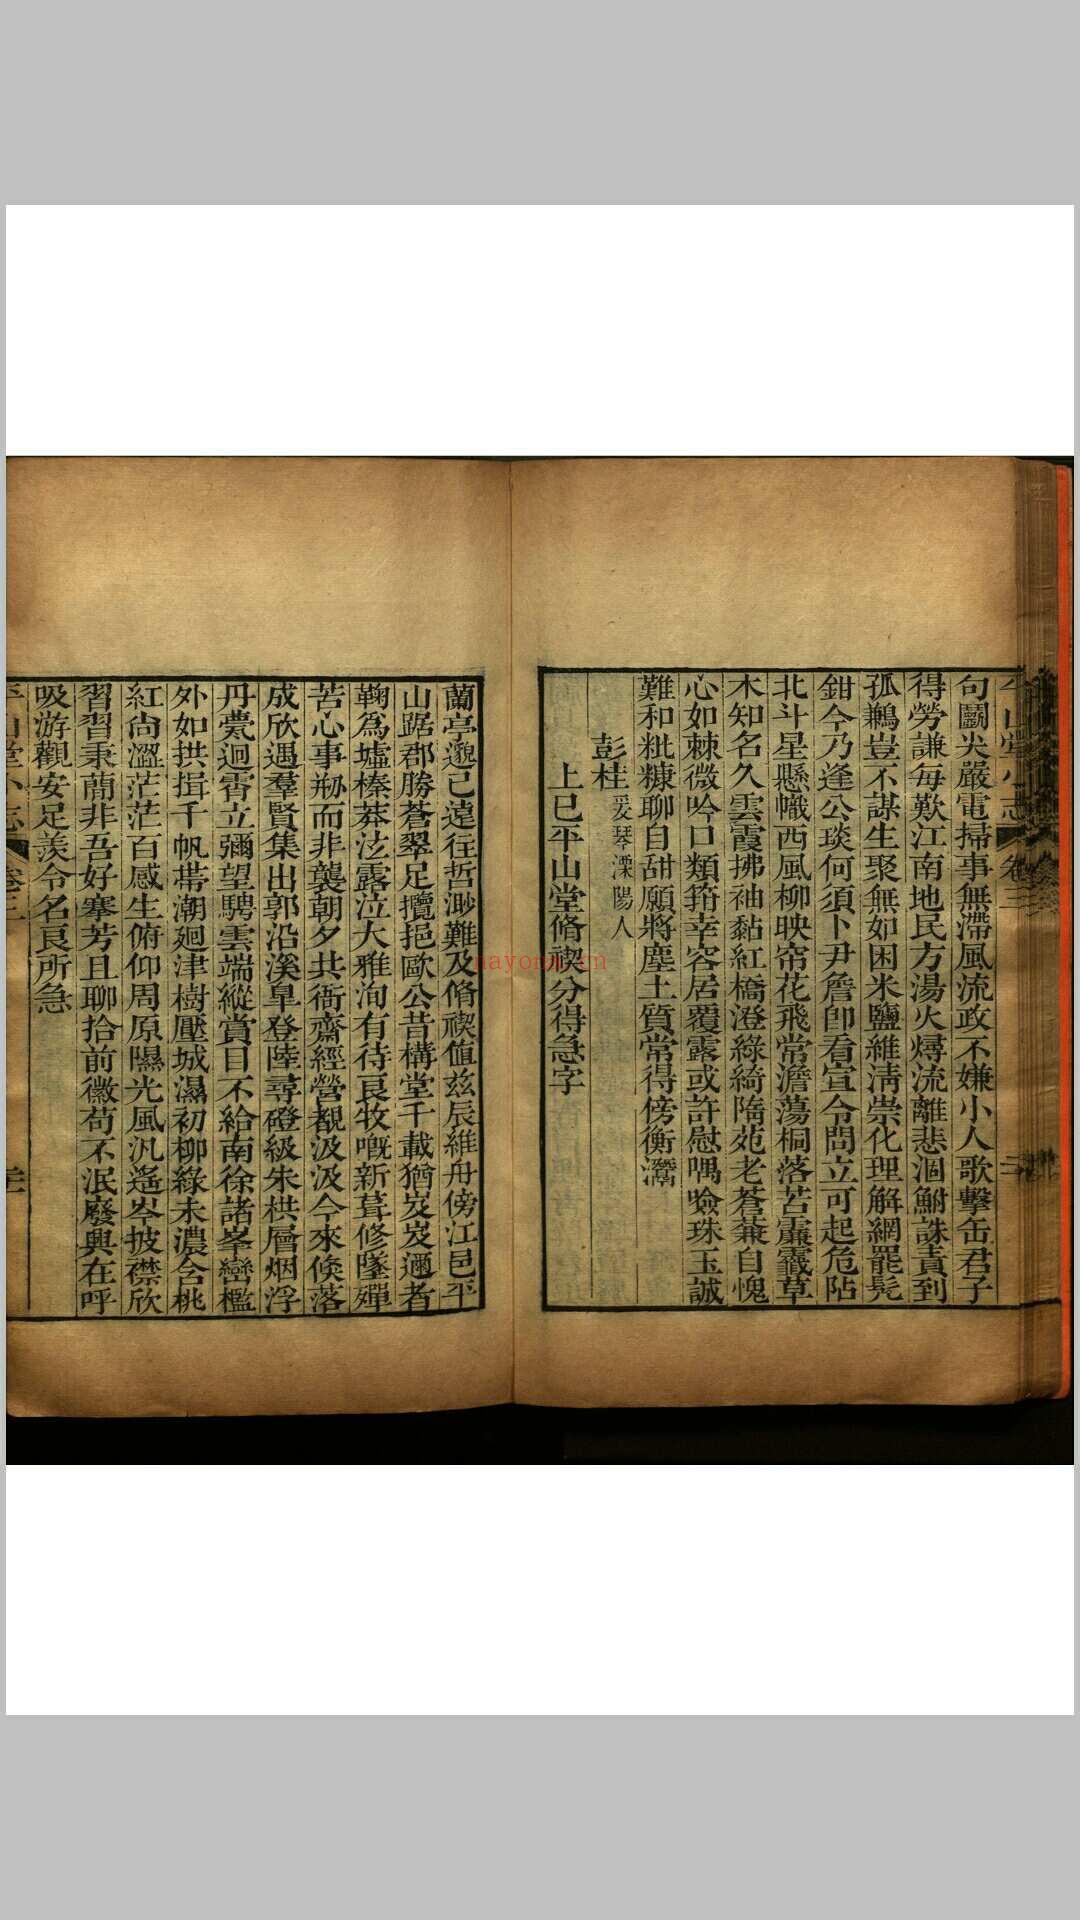 平山堂小志 卷三
句鬭尖嚴電掃事無滯風流政不嫌小人歌擊缶君子
得勞謙每歎江南地民方湯火燖流離悲涸鮒誅責到
孤鶼豈不謀生聚無如困米鹽維淸崇化理解網罷髡
鉗今乃逢公琰何須卜尹詹卽看宣令問立可起危阽
北斗星懸幟西風柳映帘花飛常澹蕩桐落苦廉纖草
木知名久雲霞拂袖黏紅橋澄綠綺隋苑老蒼蒹自愧
心如棘微吟口類箝幸容居覆露或許慰喁噞珠玉誠
難和粃糠聊自甜願將塵土質常得傍衡灊
彭桂爰琴溧陽人
上巳平山堂脩禊分得急字
蘭亭邈已遠往哲渺難及脩禊值兹辰維舟傍江邑平
山踞郡勝蒼翠足攬挹歐公昔構堂千載猶岌岌邇者
鞠爲墟榛莽泫露泣大雅洵有待良牧嘅新葺修墜殫
苦心事剏而非襲朝夕共衙齋經營覩汲汲今來倐落
成欣遇羣賢集出郭沿溪臯登陸尋磴級朱栱層烟浮
丹甍迴霄立彌望騁雲端縱賞目不給南徐諸峯巒檻
外如拱揖千帆帶潮廻津樹壓城濕初柳綠未濃含桃
紅尙澀茫茫百感生俯仰周原隰光風汎遙岑披襟欣
習習秉蕑非吾好搴芳且聊拾前徽苟不泯廢興在呼
吸游觀安足羨令名良所急
平山堂小志 卷三